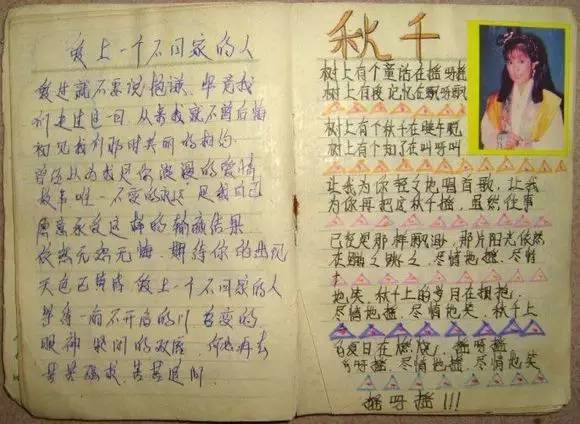 爱上一个不回家的人
爱过就不要说抱谦,毕竟我
们走过这一回,从来我就不曾后悔
初见我们那时共同的相约
曾经以为我是你浪漫的爱情
故事唯一不变的永远,是我自己
愿意承受这样的输赢结果
依然无怨无悔,期待你的出现
天色已黄昏,爱上一个不回家的人
等待一扇不开启的门,善变的
眼神 紧闭的双唇,何必再去
苦苦强求,苦苦追问
秋千
树上有个童话在摇呀摇
树上有段记忆在飘呀飘
树上有个秋千在
树上有个知了在叫呀叫
让我为你轻轻地唱首歌,让我
为你再把这秋千摇,虽然往事
已变是那样飘渺,那片阳光依然
在跳之跳之,尽情地摇,尽情
地笑,秋千上的岁月在拥抱,
尽情地摇,尽情地笑,秋千上
的夏日在燃烧,摇呀摇
呀摇,尽情地摇,尽情地笑
摇呀摇!!!